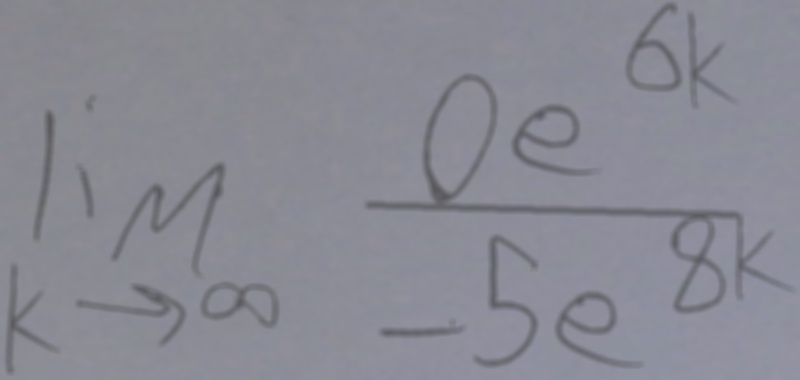 lim k→∞ 0e^{6k} / -5e^{8k}